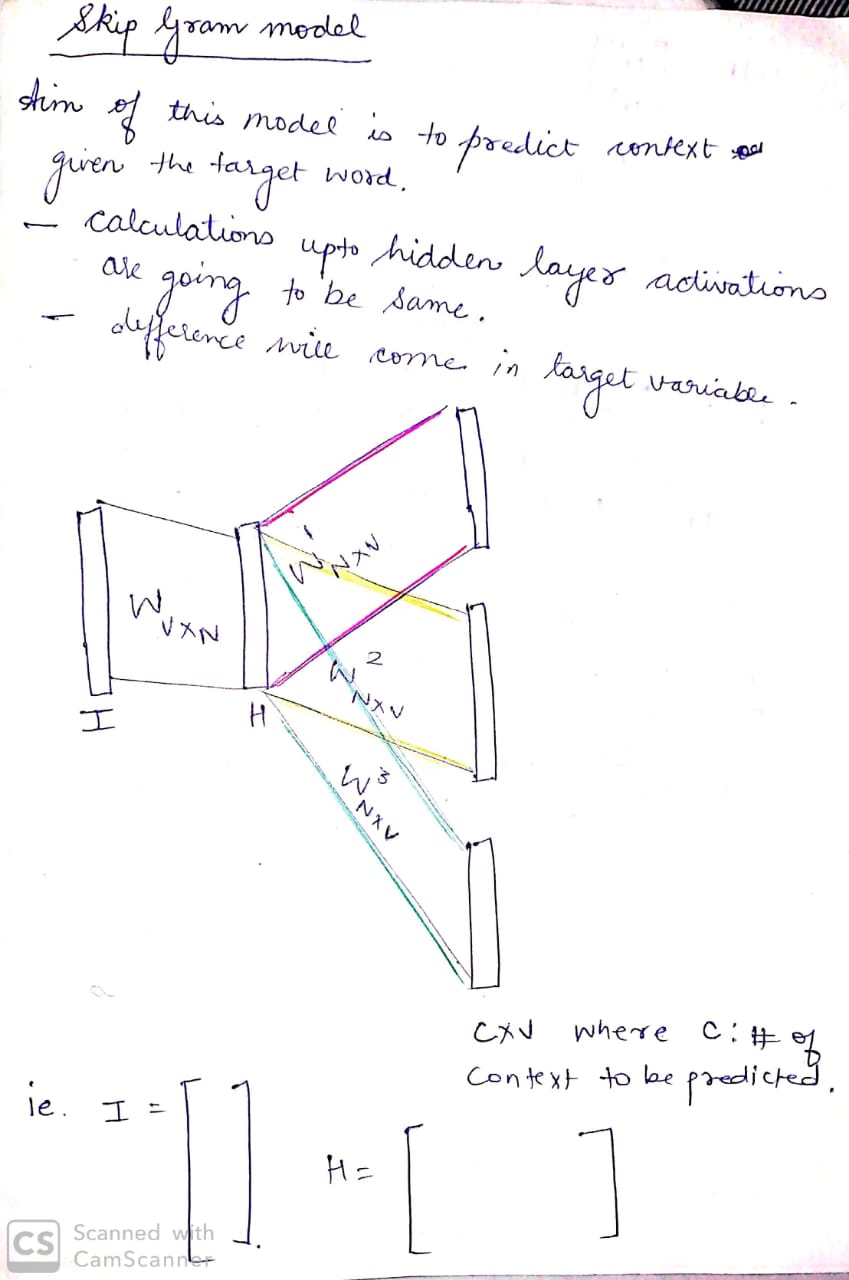 Skip Gram model
Aim of this model is to predict context
given the target word.
- calculations upto hidden layer activations
are going to be same.
- difference will come in target variable.
W¹NXV
WVXN
W²
NXV
I
H
W³
NXV
CXV where C: # of
Context to be predicted.
ie. I = [ ]
H = [ ]
CS Scanned with
CamScanner